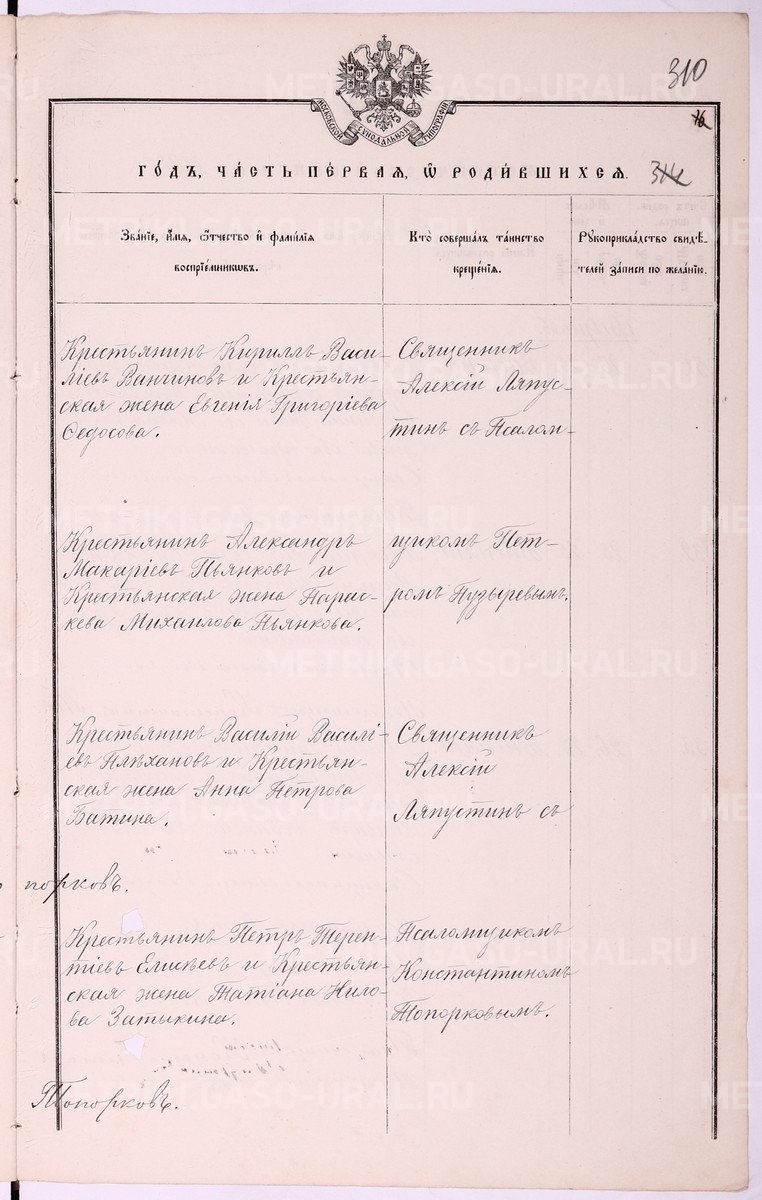 310
МОСКОВСКОЙ СѴНОДАЛЬНОЙ ТИПОГРАФІИ
ГО́ДЪ, ЧА́СТЬ ПЕ́РВАЯ, Ѡ҆ РОДИ́ВШИХСЯ.
314
Зва́нїе, и҆́мѧ, ѻ҆́тчество и҆ фами́лїѧ
воспрїе́мникѡвъ.
Кто̀ соверша́лъ та́инство
креще́нїѧ.
Рꙋкоприкла́дство свидѣ́-
телей за́писи по жела́нїю.
Крестьянинъ Кириллъ Васи-
ліевъ Ванчиновъ и Крестьян-
ская жена Евгенія Григоріева
Ѳедосова.
Священникъ
Алексій Ляпус-
тинъ съ Псалом-
Крестьянинъ Александръ
Макаріевъ Пьянковъ и
Крестьянская жена Парас-
кева Михаилова Пьянкова.
щикомъ Пет-
ромъ Пузыревымъ.
Крестьянинъ Василій Василі-
евъ Плѣхановъ и Крестьян-
ская жена Анна Петрова
Батина.
Священникъ
Алексій
Ляпустинъ съ
порковъ.
Крестьянинъ Петръ Терен-
тіевъ Елисѣевъ и Крестьян-
ская жена Татіана Нило-
ва Затыкина.
Псаломщикомъ
Константиномъ
Топорковымъ.
Топорковъ.
METRIKI.GASO-URAL.RU